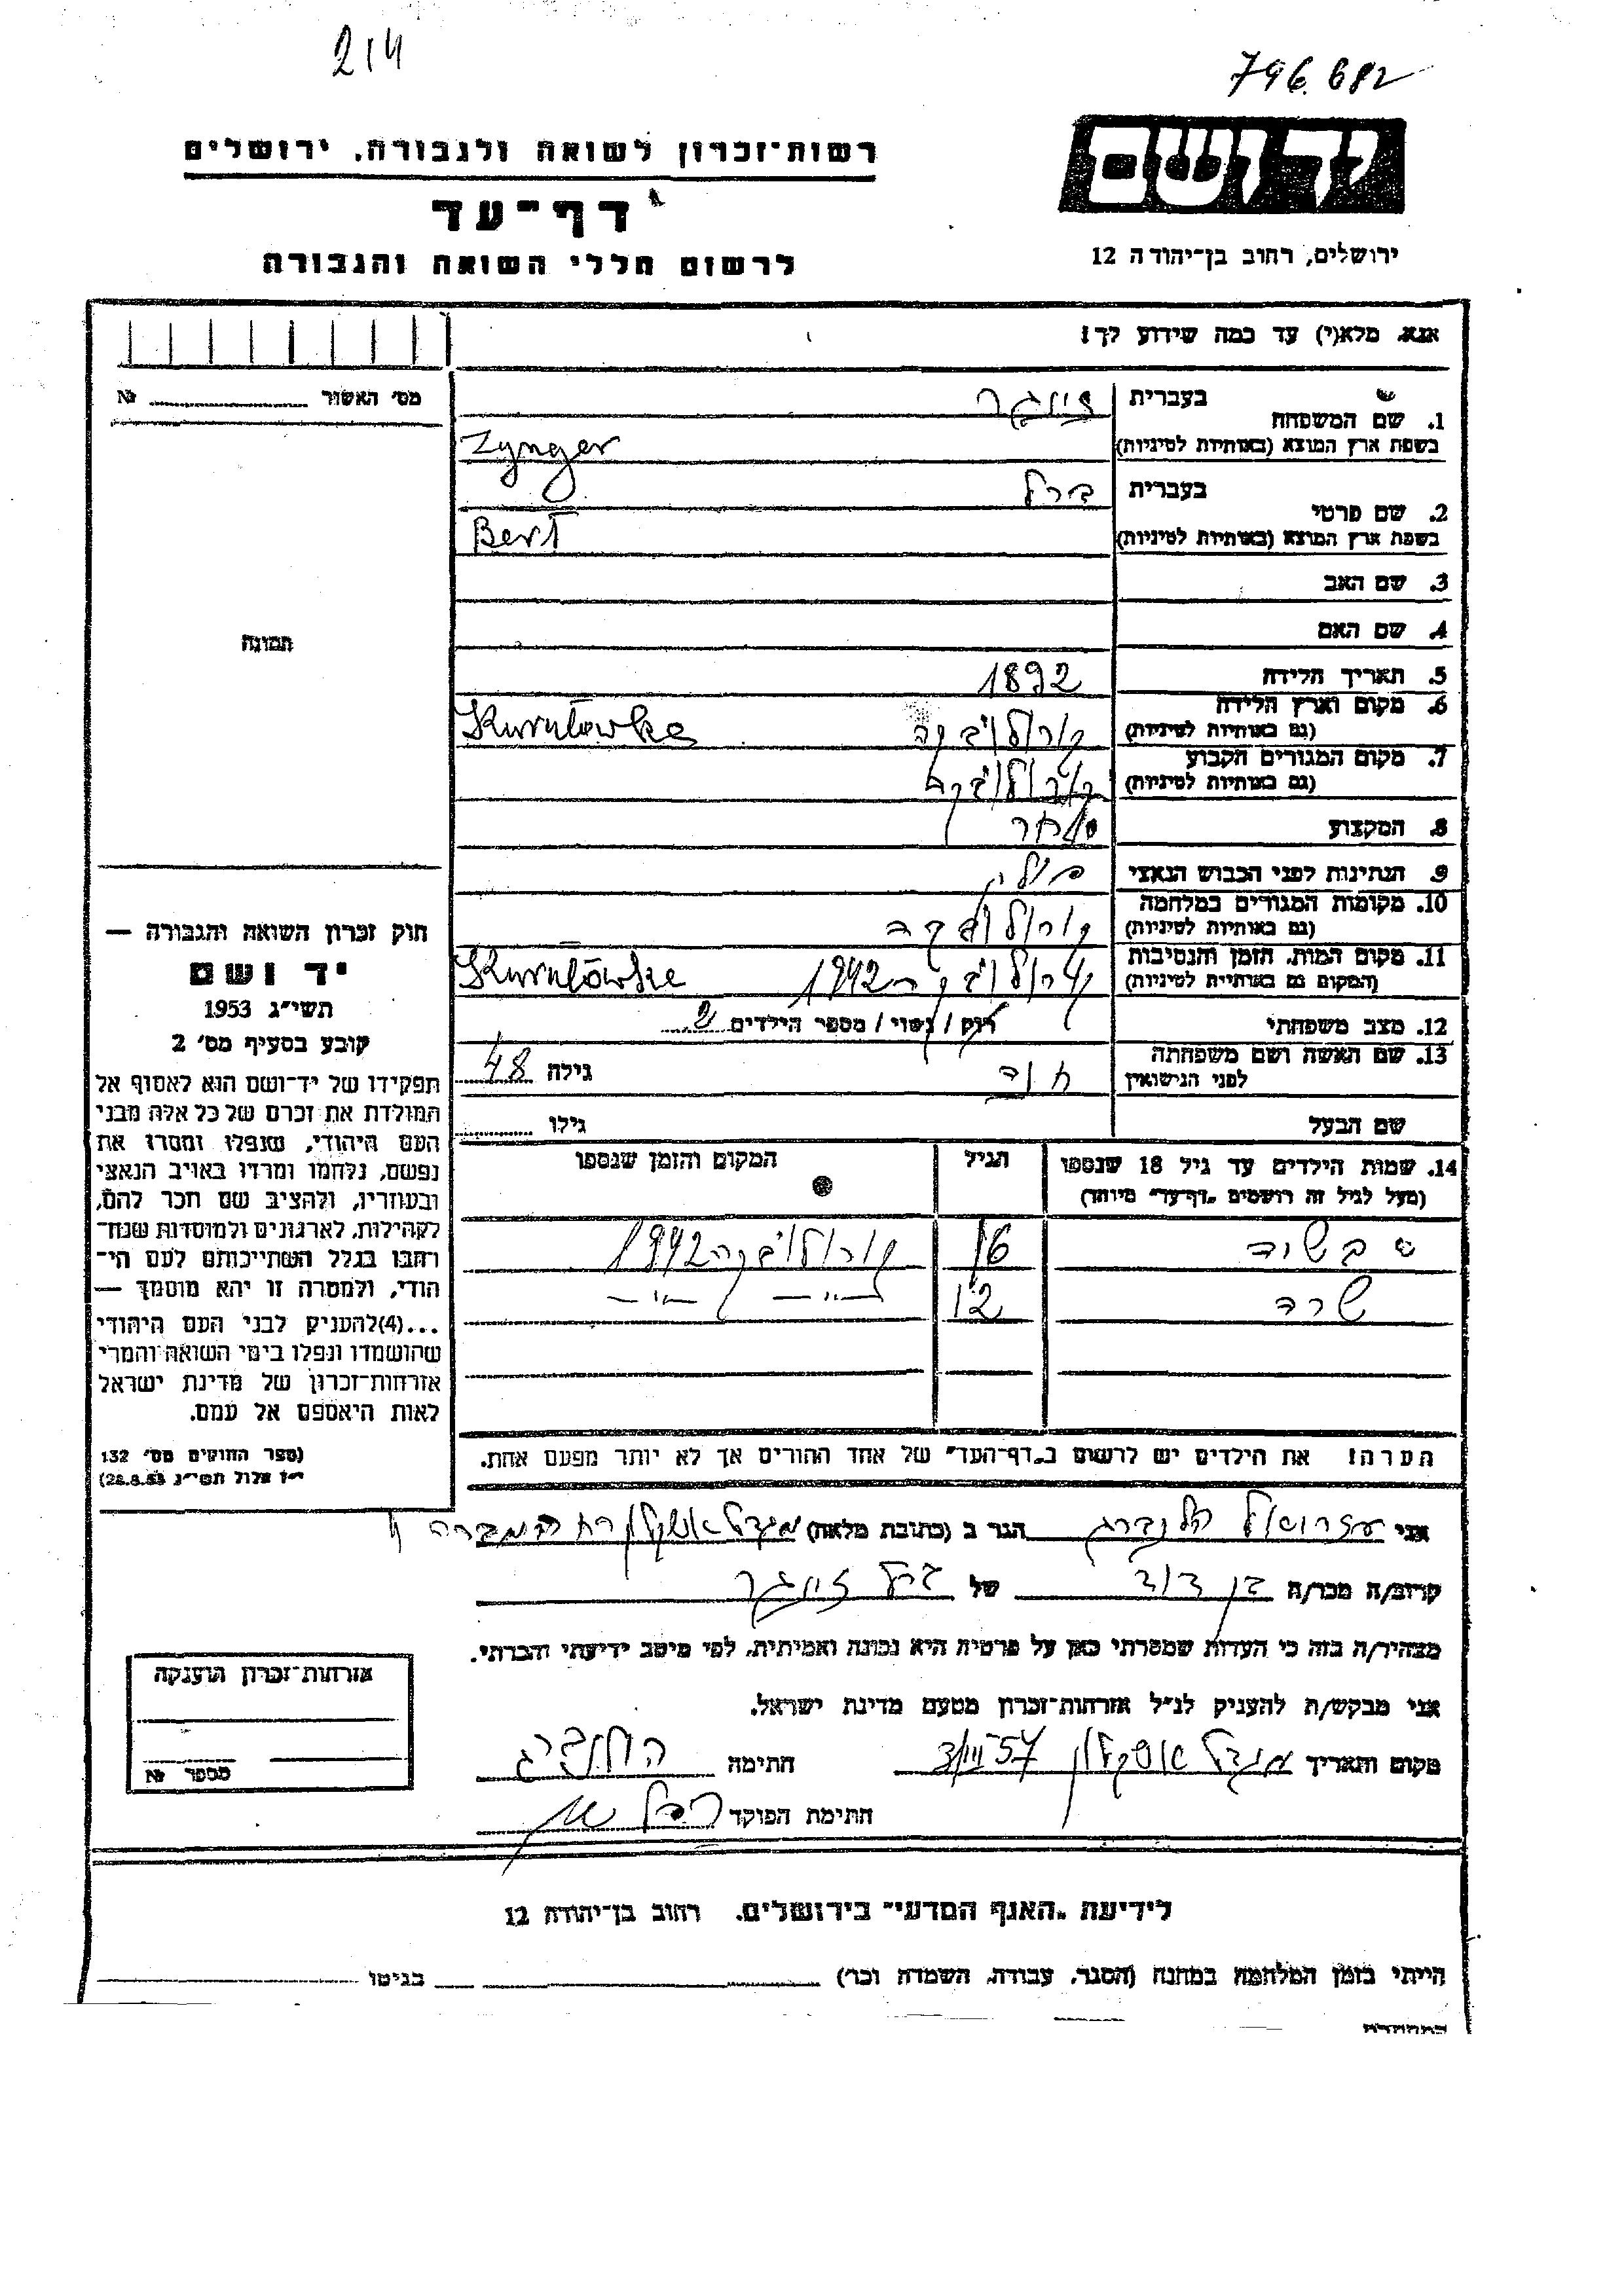 214
796.682
רשות־זכרון לשואה ולגבורה, ירושלים
יד ושם
דף־עד
ירושלים, רחוב בן־יהודה 12
לרשום חללי השואה והגבורה
אנא, מלא(י) עד כמה שידוע לך!
מס' האשור № 
1. שם המשפחה
בעברית זינגר
בשפת ארץ המוצא (באותיות לטיניות) Zynger
2. שם פרטי
בעברית ברל
בשפת ארץ המוצא (באותיות לטיניות) Berl
3. שם האב
4. שם האם
תמונה
5. תאריך הלידה 1892
6. מקום וארץ הלידה
(גם באותיות לטיניות) קורולובקה Kurulówka
7. מקום המגורים הקבוע
(גם באותיות לטיניות) קורולובקה
8. המקצוע סוחר
9. הנתינות לפני הכבוש הנאצי פולין
10. מקומות המגורים במלחמה
(גם באותיות לטיניות) קורולובקה
11. מקום המות, הזמן והנסיבות
(המקום גם באותיות לטיניות) קורולובקה 1942 Kurulówka
12. מצב משפחתי רוק / נשוי / מספר הילדים 2
13. שם האשה ושם משפחתה
לפני הנישואין חוה גילה 48
שם הבעל גילו
14. שמות הילדים עד גיל 18 שנספו הגיל המקום והזמן שנספו
(מעל לגיל זה רושמים „דף־עד" מיוחד)
16 קורולובקה 1942
שרה 12 —"— —"—
הערה! את הילדים יש לרשום ב„דף־העד" של אחד ההורים אך לא יותר מפעם אחת.
חוק זכרון השואה והגבורה —
יד ושם
תשי״ג 1953
קובע בסעיף מס' 2
תפקידו של יד־ושם הוא לאסוף אל
המולדת את זכרם של כל אלה מבני
העם היהודי, שנפלו ומסרו את
נפשם, נלחמו ומרדו באויב הנאצי
ובעוזריו, ולהציב שם וזכר להם,
לקהילות, לארגונים ולמוסדות שנח־
רבו בגלל השתייכותם לעם הי־
הודי, ולמטרה זו יהא מוסמך —
...(4)להעניק לבני העם היהודי
שהושמדו ונפלו בימי השואה והמרי
אזרחות־זכרון של מדינת ישראל
לאות היאספם אל עמם.
(ספר החוקים מס' 132
י״ז אלול תשי״ג 28.8.53)
אני עזרואל הלנברג הגר ב (כתובת מלאה) מגדל אשקלון רח
קרוב/ה מכר/ה בן דוד של ברל זינגר
מצהיר/ה בזה כי העדות שמסרתי כאן על פרטיה היא נכונה ואמיתית, לפי מיטב ידיעתי והכרתי.
אני מבקש/ת להעניק לנ״ל אזרחות־זכרון מטעם מדינת ישראל.
מקום ותאריך מגדל אשקלון 3/III 57 חתימה הלנברג
חתימת הפוקד
אזרחות־זכרון הוענקה
מספר №
לידיעת „האגף המדעי" בירושלים, רחוב בן־יהודה 12
הייתי בזמן המלחמה במחנה (הסגר, עבודה, השמדה וכו') בגיטו